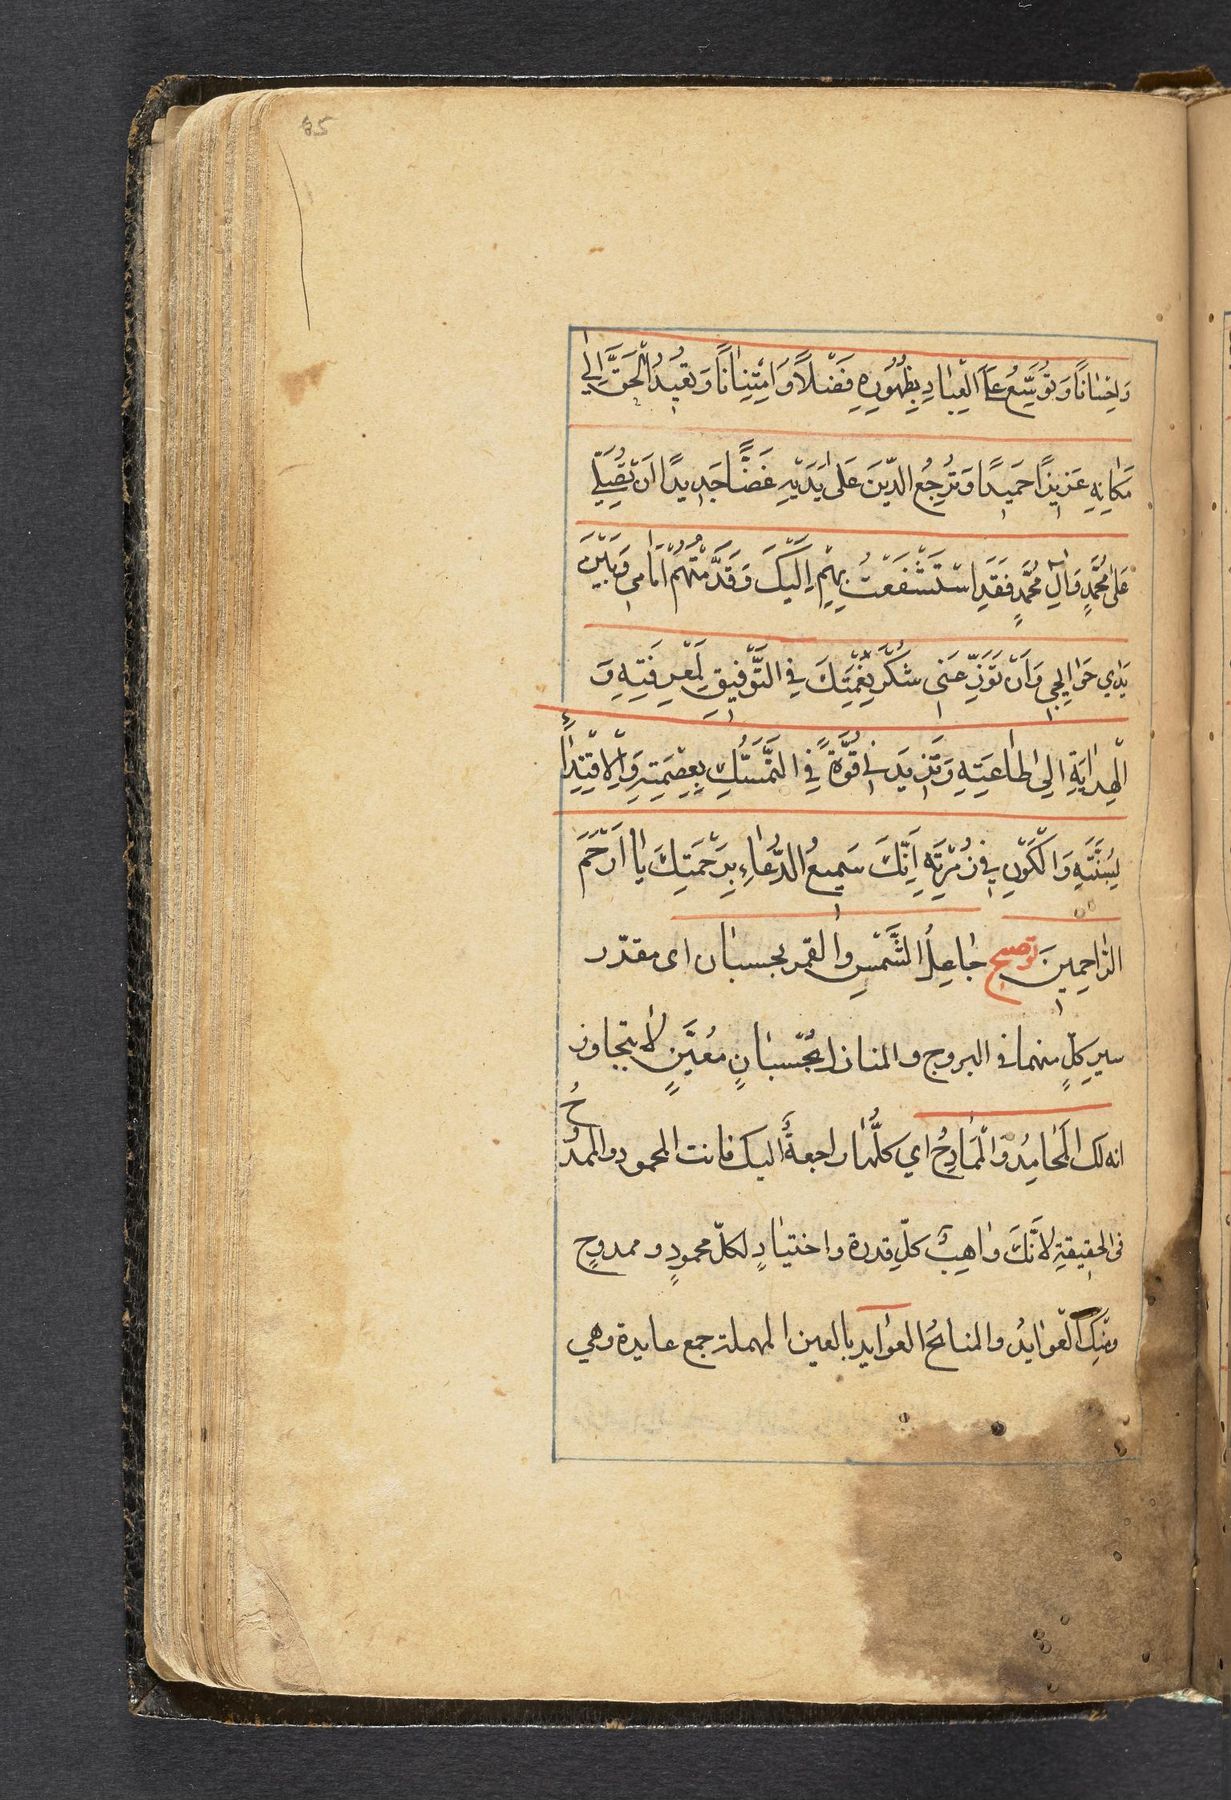 85
وَاِحْسٰانًا وَتُوَسِّعُ عَلَى الْعِبٰادِ بِظُهُورِهِ فَضْلًا وَامْتِنٰانًا وَتُعِيدُ الْحَقَّ اِلٰى
مَكٰانِهِ عَزِيزًا حَمِيدًا وَتُرْجِعُ الدّينَ عَلٰى يَدَيْهِ غَضًّا جَدِيدًا اَنْ تُصَلِّيَ
عَلٰى مُحَمَّدٍ وَآلِ مُحَمَّدٍ فَقَدِ اسْتَشْفَعْتُ بِهِمْ اِلَيْكَ وَقَدَّمْتُهُمْ اَمٰامِي وَبَيْنَ
يَدَيْ حَوٰايِجِي وَاَنْ تُوزِعَنِي شُكْرَ نِعْمَتِكَ فِي التَّوْفِيقِ لِمَعْرِفَتِهِ وَ
الْهِدٰايَةِ اِلٰى طٰاعَتِهِ وَتَزِيدَنِي قُوَّةً فِي التَّمَسُّكِ بِعِصْمَتِهِ وَالْاِقْتِدٰاءِ
بِسُنَّتِهِ وَالْكَوْنِ فِي زُمْرَتِهِ اِنَّكَ سَمِيعُ الدُّعٰاءِ بِرَحْمَتِكَ يٰا اَرْحَمَ
الرّٰاحِمِينَ توضيح جٰاعِلُ الشَّمْسِ وَالقمر بحسبان اى مقدّر
سيرِ كلٍّ منهما فى البروج والمنازل بحُسْبٰانٍ مُعَيَّنٍ لا يتجاوز
انه لك الْمَحٰامِدُ وَالْمَمٰادِحُ اي كلُّهٰا راجعةٌ اليك فانت المحمود والممدُوحُ
فى الحقيقةِ لانَّكَ وٰاهِبُ كلِّ قدرة واختيٰارٍ لكلّ محمودٍ وممدوحٍ
ومِنْكَ الْعَوٰايِدُ والمنائحُ العوٰايد بالعين المهملة جمع عايدة وهي